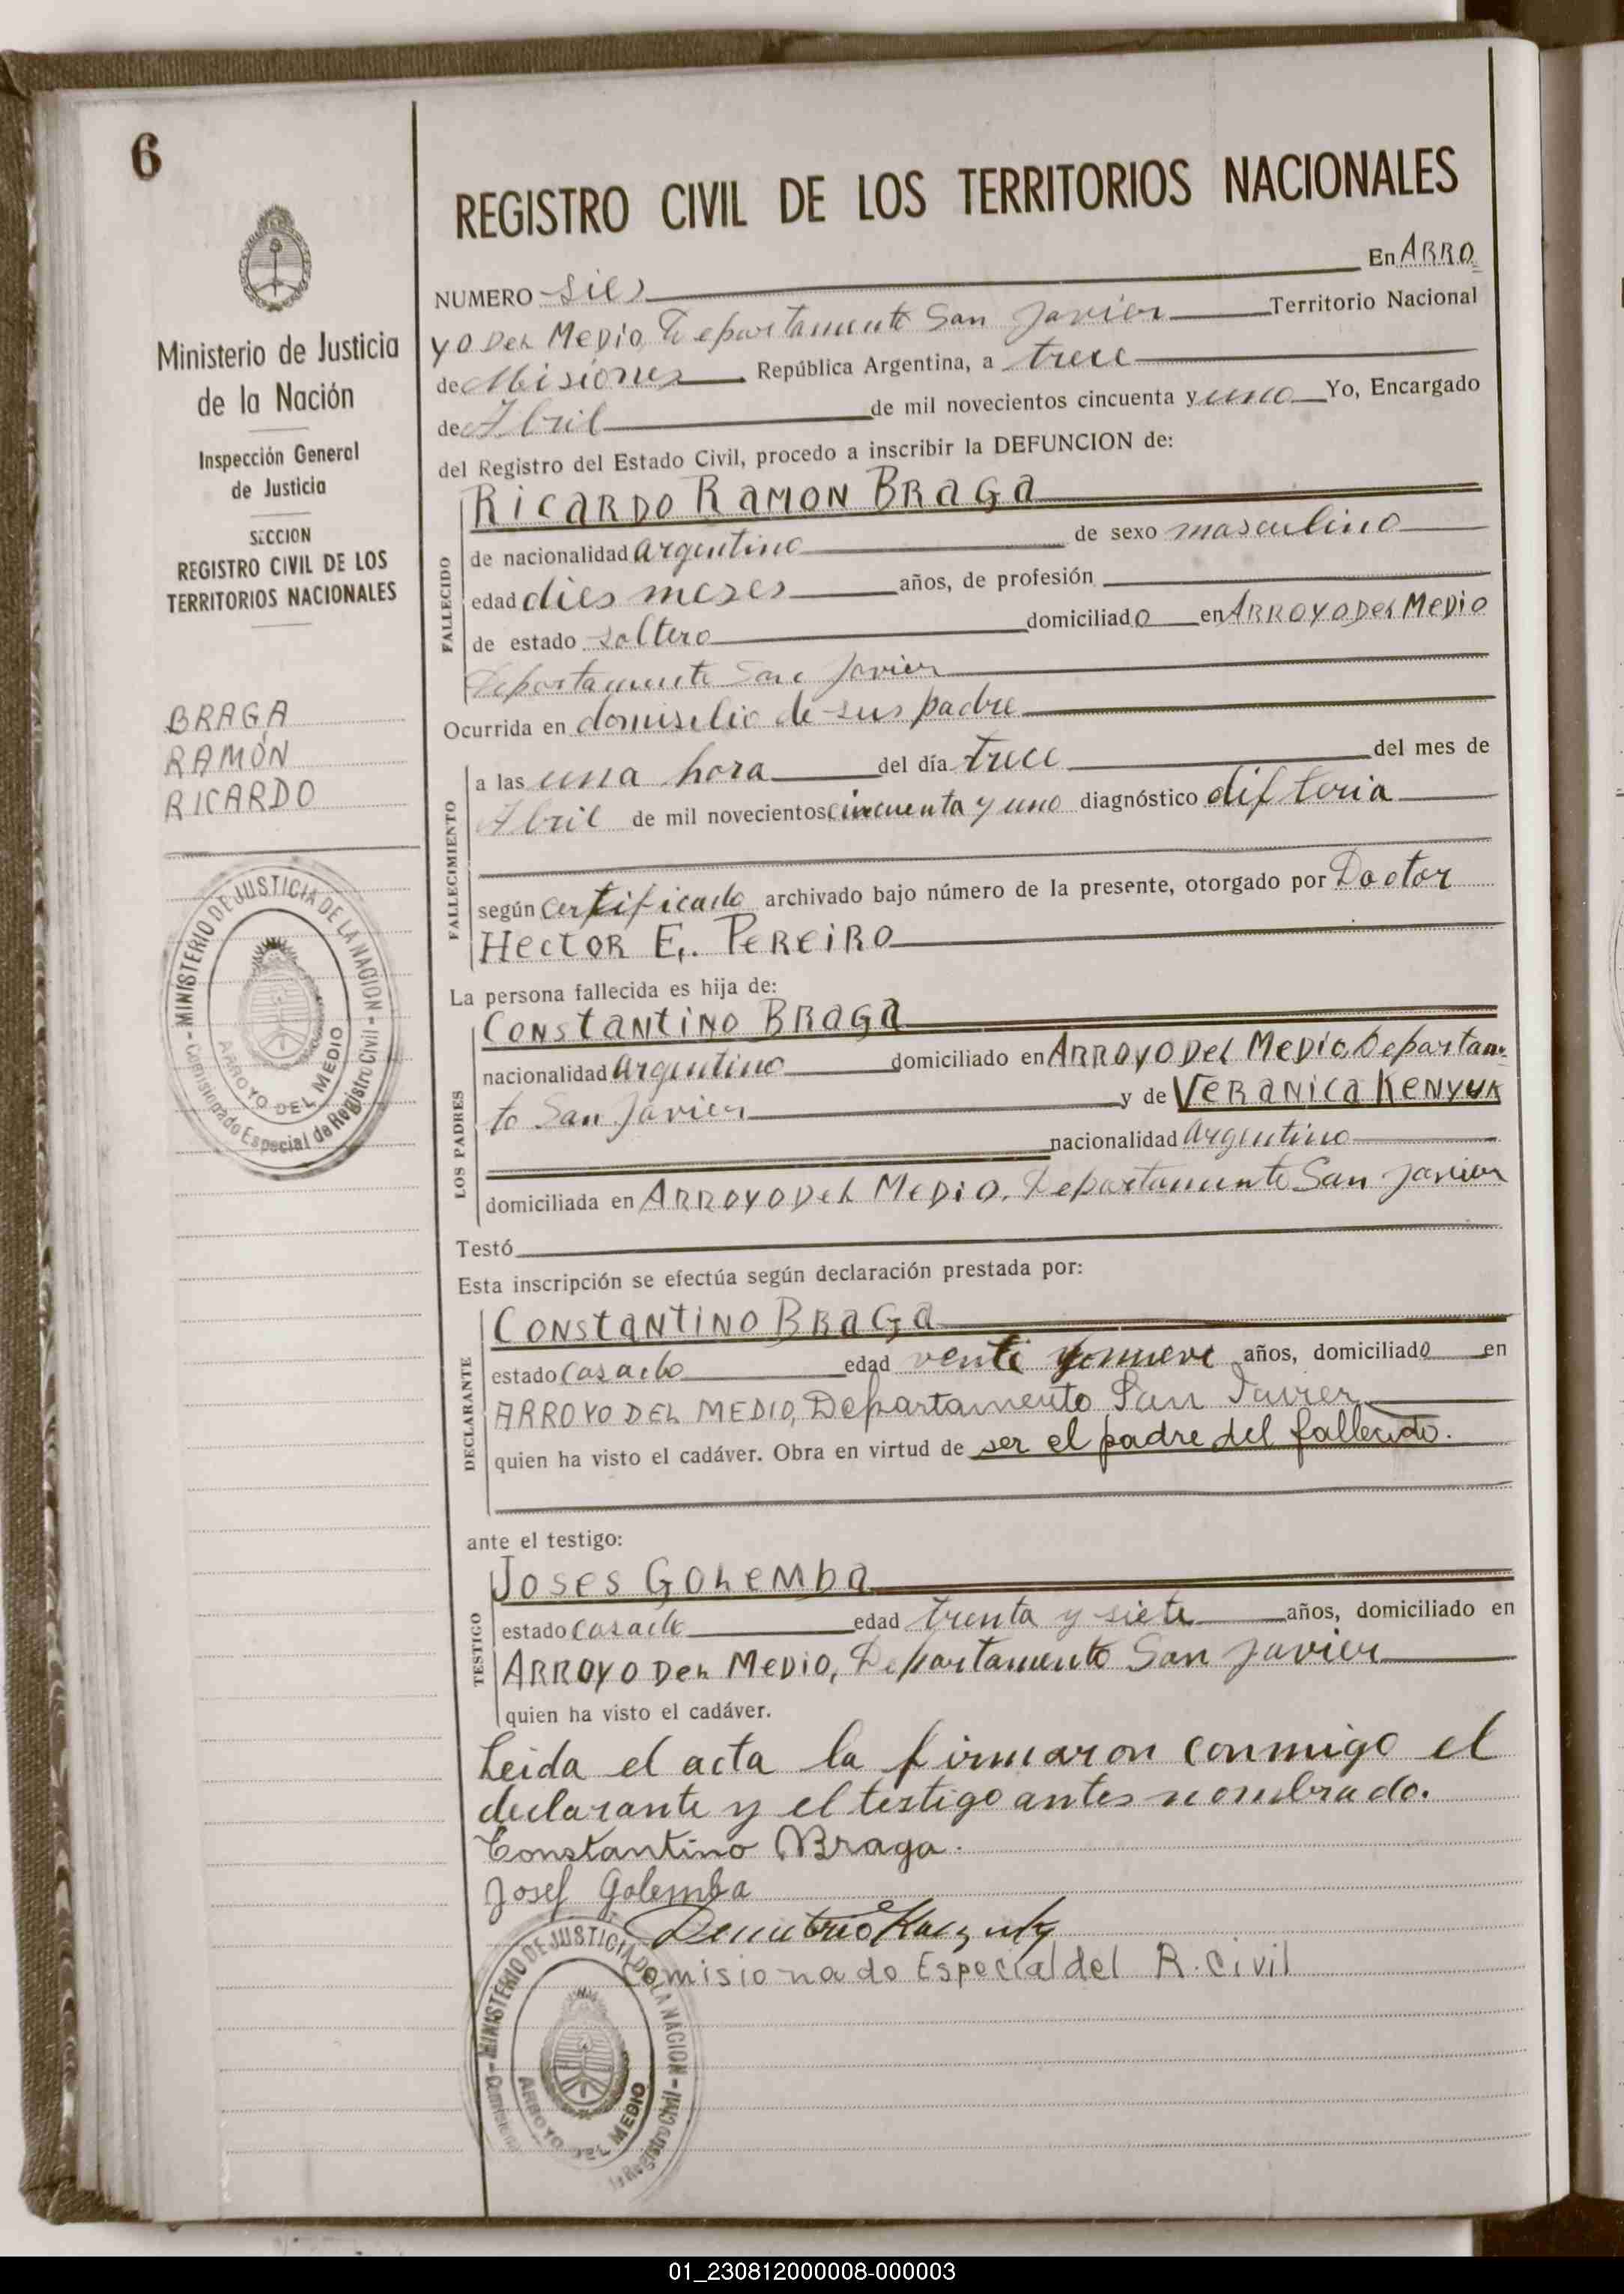 6
Ministerio de Justicia
de la Nación
Inspección General
de Justicia
SECCION
REGISTRO CIVIL DE LOS
TERRITORIOS NACIONALES
BRAGA
RAMÓN
RICARDO
- MINISTERIO DE JUSTICIA DE LA NACION -
Comisionado Especial de Registro Civil
ARROYO DEL MEDIO
REGISTRO CIVIL DE LOS TERRITORIOS NACIONALES
NUMERO sies En ARRO
YO DEL MEDIO, Departamento San Javier Territorio Nacional
de Misiones República Argentina, a trece
de Abril de mil novecientos cincuenta y uno Yo, Encargado
del Registro del Estado Civil, procedo a inscribir la DEFUNCION de:
FALLECIDO
RICARDO RAMON BRAGA
de nacionalidad argentino de sexo masculino
edad dies meses años, de profesión
de estado soltero domiciliado en ARROYO DEL MEDIO
Departamento San Javier
Ocurrida en domiselio de sus padre
FALLECIMIENTO
a las una hora del día trece del mes de
Abril de mil novecientos cincuenta y uno diagnóstico difteria
según certificado archivado bajo número de la presente, otorgado por Doctor
HECTOR E. PEREIRO
La persona fallecida es hija de:
LOS PADRES
CONSTANTINO BRAGA
nacionalidad argentino domiciliado en ARROYO DEL MEDIO Departamen
to San Javier y de VERANICA KENYUK
nacionalidad argentino
domiciliada en ARROYO DEL MEDIO, Departamento San Javier
Testó
Esta inscripción se efectúa según declaración prestada por:
DECLARANTE
CONSTANTINO BRAGA
estado casado edad venti y nueve años, domiciliado en
ARROYO DEL MEDIO, Departamento San Javier
quien ha visto el cadáver. Obra en virtud de ser el padre del fallecido.
ante el testigo:
TESTIGO
JOSES GOLEMBA
estado casado edad trenta y siete años, domiciliado en
ARROYO DEL MEDIO, Departamento San Javier
quien ha visto el cadáver.
Leida el acta la firmaron conmigo el
declarante y el testigo antes nombrado.
Constantino Braga.
Josef Golemba
Comisionado Especial del R. Civil
- MINISTERIO DE JUSTICIA DE LA NACION -
Registro Civil
ARROYO DEL MEDIO
01_230812000008-000003